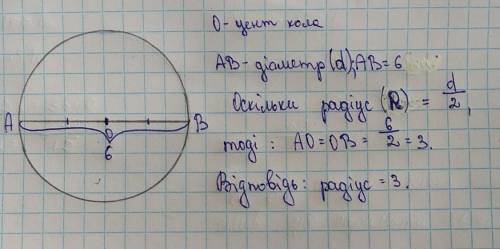 О - цент кола
АВ - діаметр (d); АВ = 6
Оскільки радіус (R) = d/2,
тоді : АО = ОВ = 6/2 = 3.
Відповідь : радіус = 3.
А О В
6